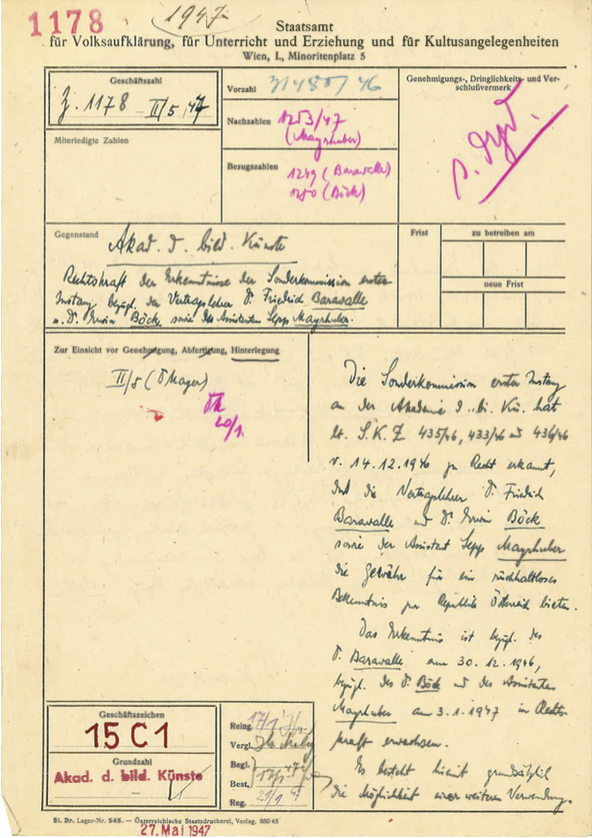 1178
1947
Staatsamt
für Volksaufklärung, für Unterricht und Erziehung und für Kultusangelegenheiten
Wien, I., Minoritenplatz 5
Geschäftszahl
Z. 1178 - II/5, 47
Miterledigte Zahlen
Vorzahl
Nachzahlen 1253/47
(Mayrhuber)
Bezugszahlen
1249 (Baravalle)
1250 (Böck)
Genehmigungs-, Dringlichkeits- und Ver-
schlußvermerk
Gegenstand Akad. d. bild. Künste
Rechtskraft der Erkenntnisse der Sonderkommission erster
Instanz bezügl. der Vertragslehrer Dr. Friedrich Baravalle
u. Dr. Erwin Böck sowie des Assistenten Sepp Mayrhuber.
Frist
zu betreiben am
neue Frist
Zur Einsicht vor Genehmigung, Abfertigung, Hinterlegung
II/5 (Dr. Mayer)
20/1.
Die Sonderkommission erster Instanz
an der Akademie d. bi. Kü. hat
lt. S.K.Z. 435/46, 433/46 und 436/46
v. 14.12.1946 zu Recht erkannt,
daß die Vertragslehrer Dr. Friedrich
Baravalle und Dr. Erwin Böck
sowie der Assistent Sepp Mayrhuber
die Gewähr für ein rückhaltloses
Bekenntnis zur Republik Österreich bieten.
Das Erkenntnis ist bezügl. des
Dr. Baravalle am 30.12.1946,
bezügl. des Dr. Böck und des Assistenten
Mayrhuber am 3.1.1947 in Rechts-
kraft erwachsen.
Es besteht hiemit grundsätzlich
die Möglichkeit einer weiteren Verwendung.
Geschäftszeichen
15 C 1
Grundzahl
Akad. d. bild. Künste
Reing. 17/1
Vergl.
Begl.
Best.
Reg. 21/1 47
St. Dr. Lager-Nr. 545. — Österreichische Staatsdruckerei, Verlag. 850 45
27. Mai 1947